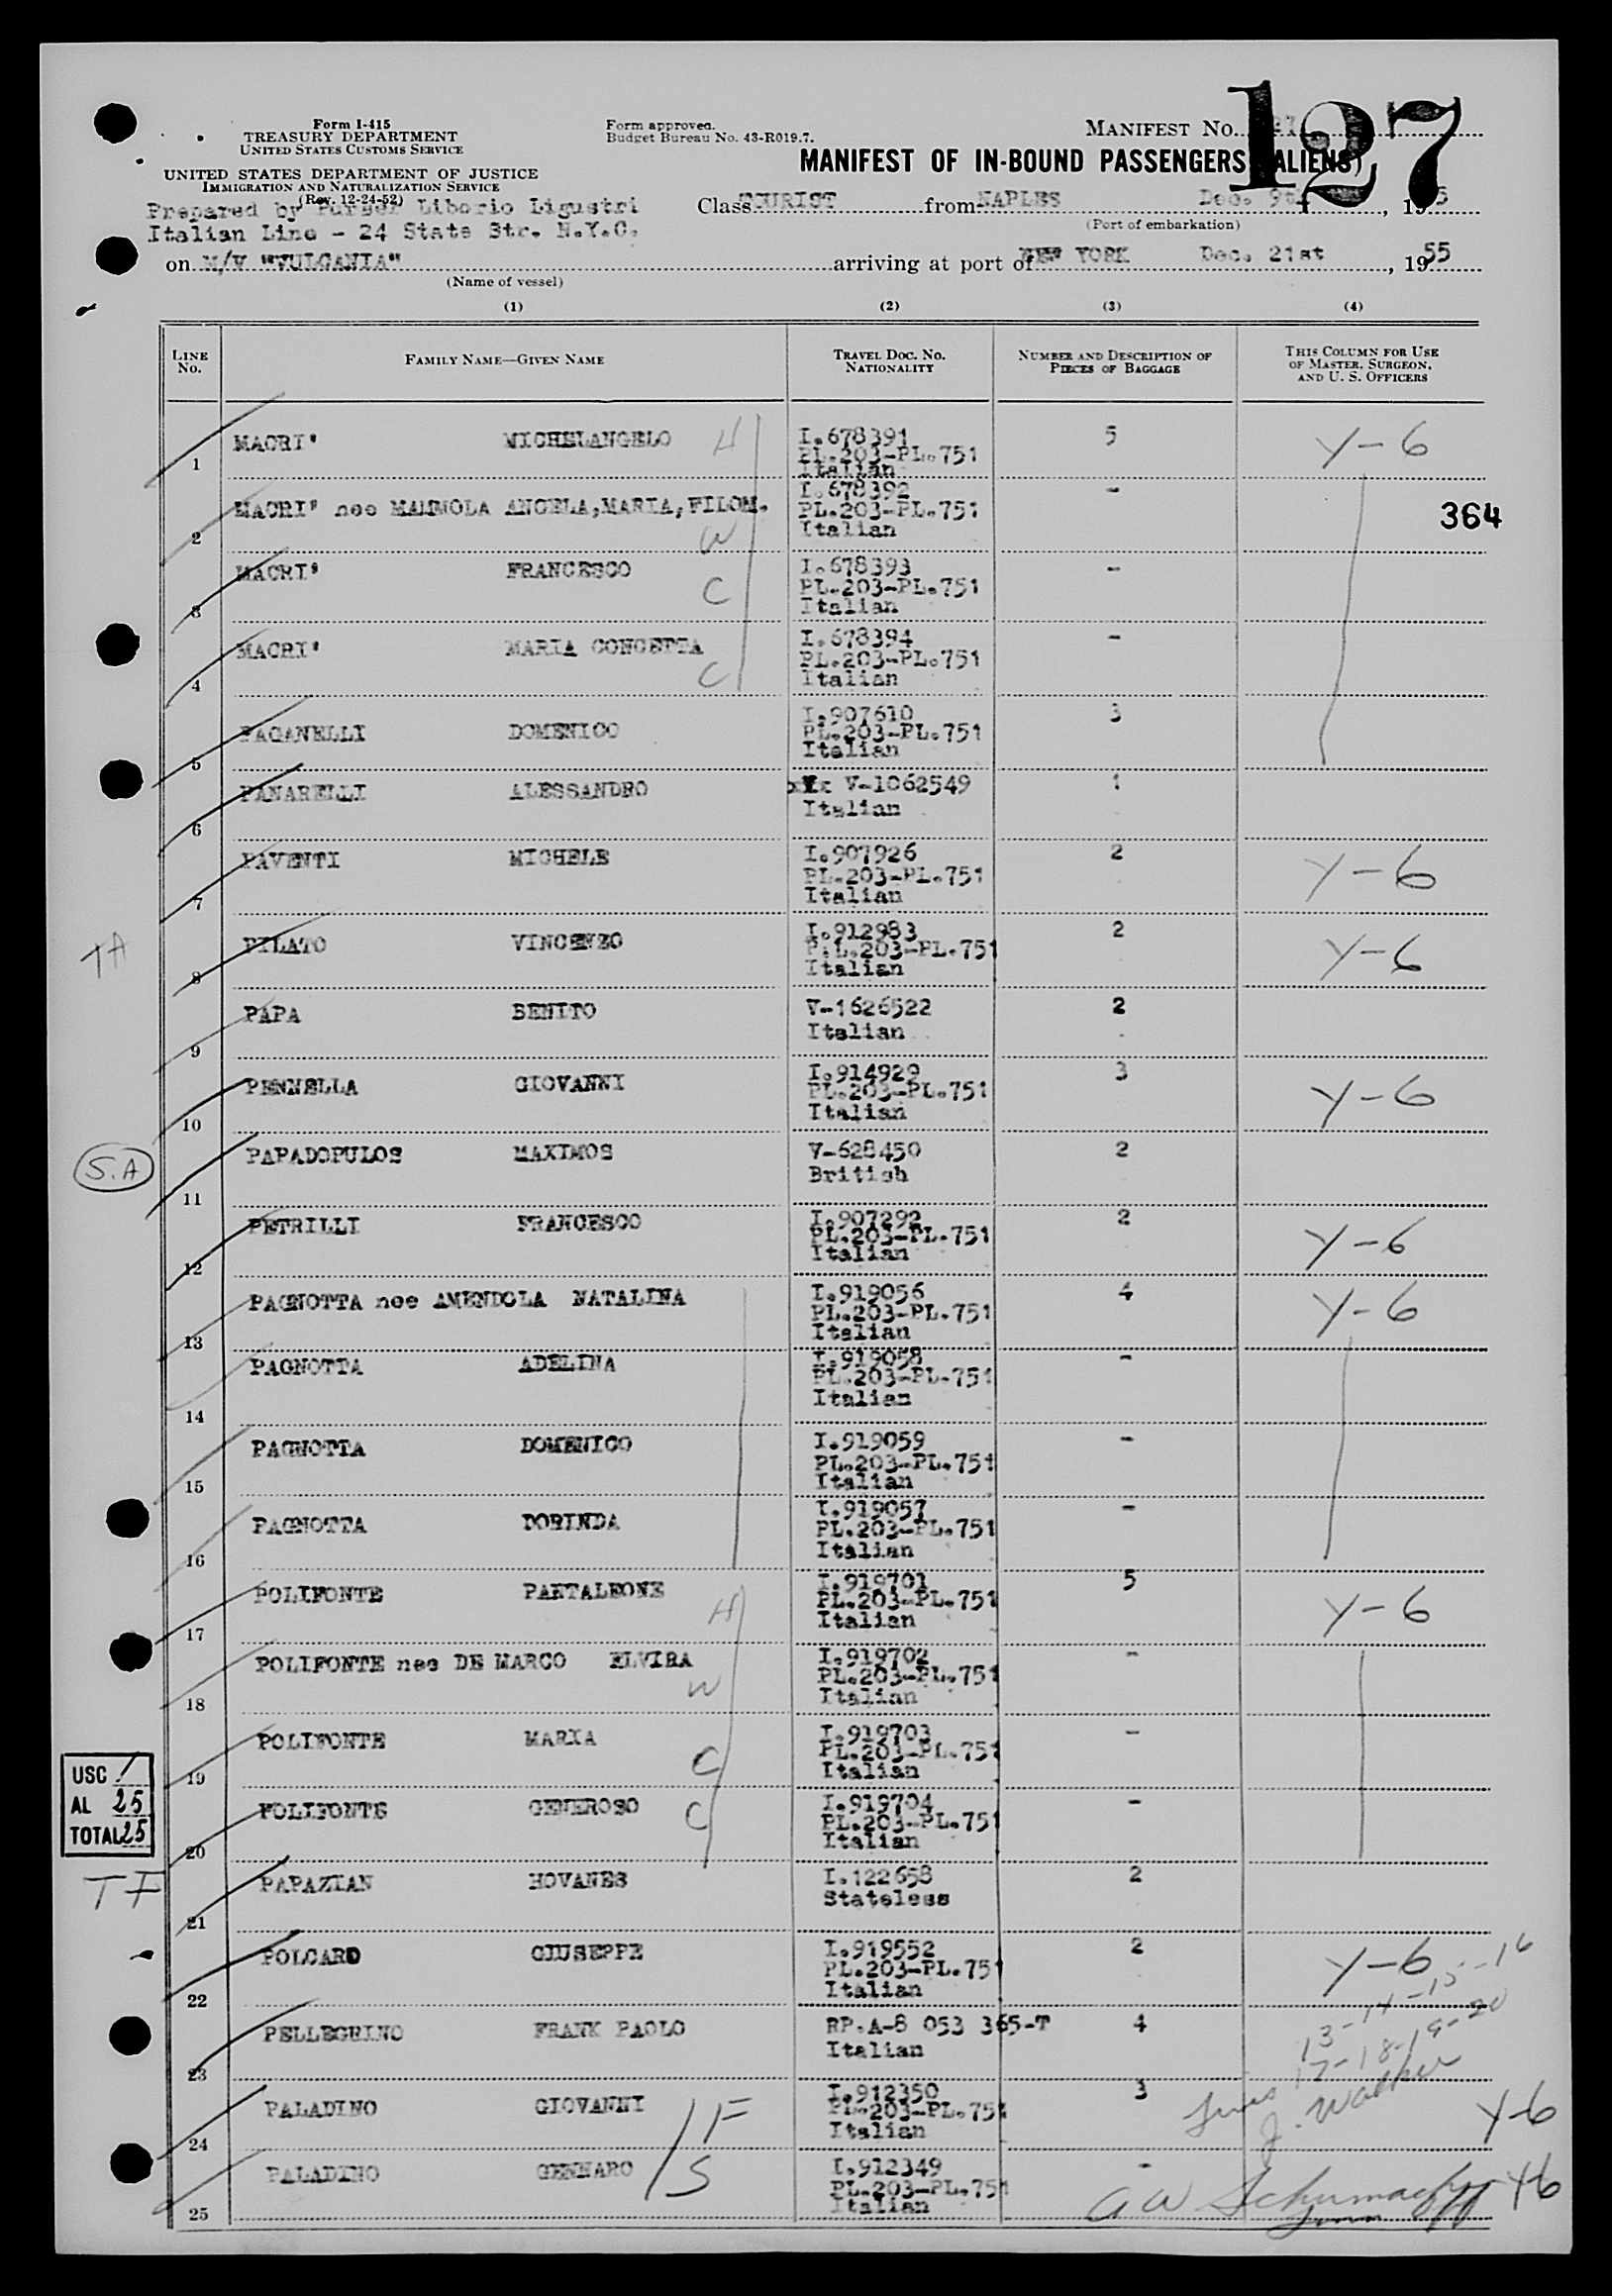 Form I-415
TREASURY DEPARTMENT
UNITED STATES CUSTOMS SERVICE
UNITED STATES DEPARTMENT OF JUSTICE
IMMIGRATION AND NATURALIZATION SERVICE
(Rev. 12-24-52)
Form approved.
Budget Bureau No. 43-R019.7.
MANIFEST NO.
127
MANIFEST OF IN-BOUND PASSENGERS (ALIENS)
Prepared by Purser Liborio Ligustri
Italian Line - 24 State Str. N.Y.C.
Class TOURIST from NAPLES Dec. 9th, 195
(Port of embarkation)
on M/V "VULCANIA" arriving at port of NEW YORK Dec. 21st, 1955
(Name of vessel)
(1) (2) (3) (4)
LINE NO. FAMILY NAME—GIVEN NAME TRAVEL DOC. NO. NATIONALITY NUMBER AND DESCRIPTION OF PIECES OF BAGGAGE THIS COLUMN FOR USE OF MASTER, SURGEON, AND U. S. OFFICERS
1 MACRI' MICHELANGELO H I.678391 PL.203-PL.751 Italian 5 Y-6
2 MACRI' nee MAMMOLA ANGELA,MARIA,FILOM. W I.678392 PL.203-PL.751 Italian -
364
3 MACRI' FRANCESCO C I.678393 PL.203-PL.751 Italian -
4 MACRI' MARIA CONCETTA C I.678394 PL.203-PL.751 Italian -
5 PAGANELLI DOMENICO I.907610 PL.203-PL.751 Italian 3
6 PANARELLI ALESSANDRO V-1062549 Italian 1
7 PAVENTI MICHELE I.907926 PL.203-PL.751 Italian 2 Y-6
TA
8 PILATO VINCENZO I.912983 P.L.203-PL.751 Italian 2 Y-6
9 PAPA BENITO V-1626522 Italian 2
10 PENNELLA GIOVANNI I.914929 PL.203-PL.751 Italian 3 Y-6
S.A
11 PAPADOPULOS MAXIMOS V-628450 British 2
12 PETRILLI FRANCESCO I.907292 PL.203-PL.751 Italian 2 Y-6
13 PAGNOTTA nee AMENDOLA NATALINA I.919056 PL.203-PL.751 Italian 4 Y-6
14 PAGNOTTA ADELINA I.919058 PL.203-PL-751 Italian -
15 PAGNOTTA DOMENICO I.919059 PL.203-PL.751 Italian -
16 PAGNOTTA DORINDA I.919057 PL.203-PL.751 Italian -
17 POLIFONTE PANTALEONE H I.919701 PL.203-PL.751 Italian 5 Y-6
18 POLIFONTE nee DE MARCO ELVIRA W I.919702 PL.203-PL.751 Italian -
19 POLIFONTE MARIA C I.919703 PL.203-PL.751 Italian -
USC /
AL 25
TOTAL 25
20 POLIFONTE GENEROSO C I.919704 PL.203-PL.751 Italian -
TF
21 PAPAZIAN HOVANES I.122658 Stateless 2
22 POLCARO GIUSEPPE I.919552 PL.203-PL.751 Italian 2 Y-6
13-14-15-16
17-18-19-20
23 PELLEGRINO FRANK PAOLO RP.A-8 053 365-T Italian 4
J. Walker
24 PALADINO GIOVANNI F I.912350 PL.203-PL.751 Italian 3 Y-6
25 PALADINO GENNARO S I.912349 PL.203-PL.751 Italian - Y6